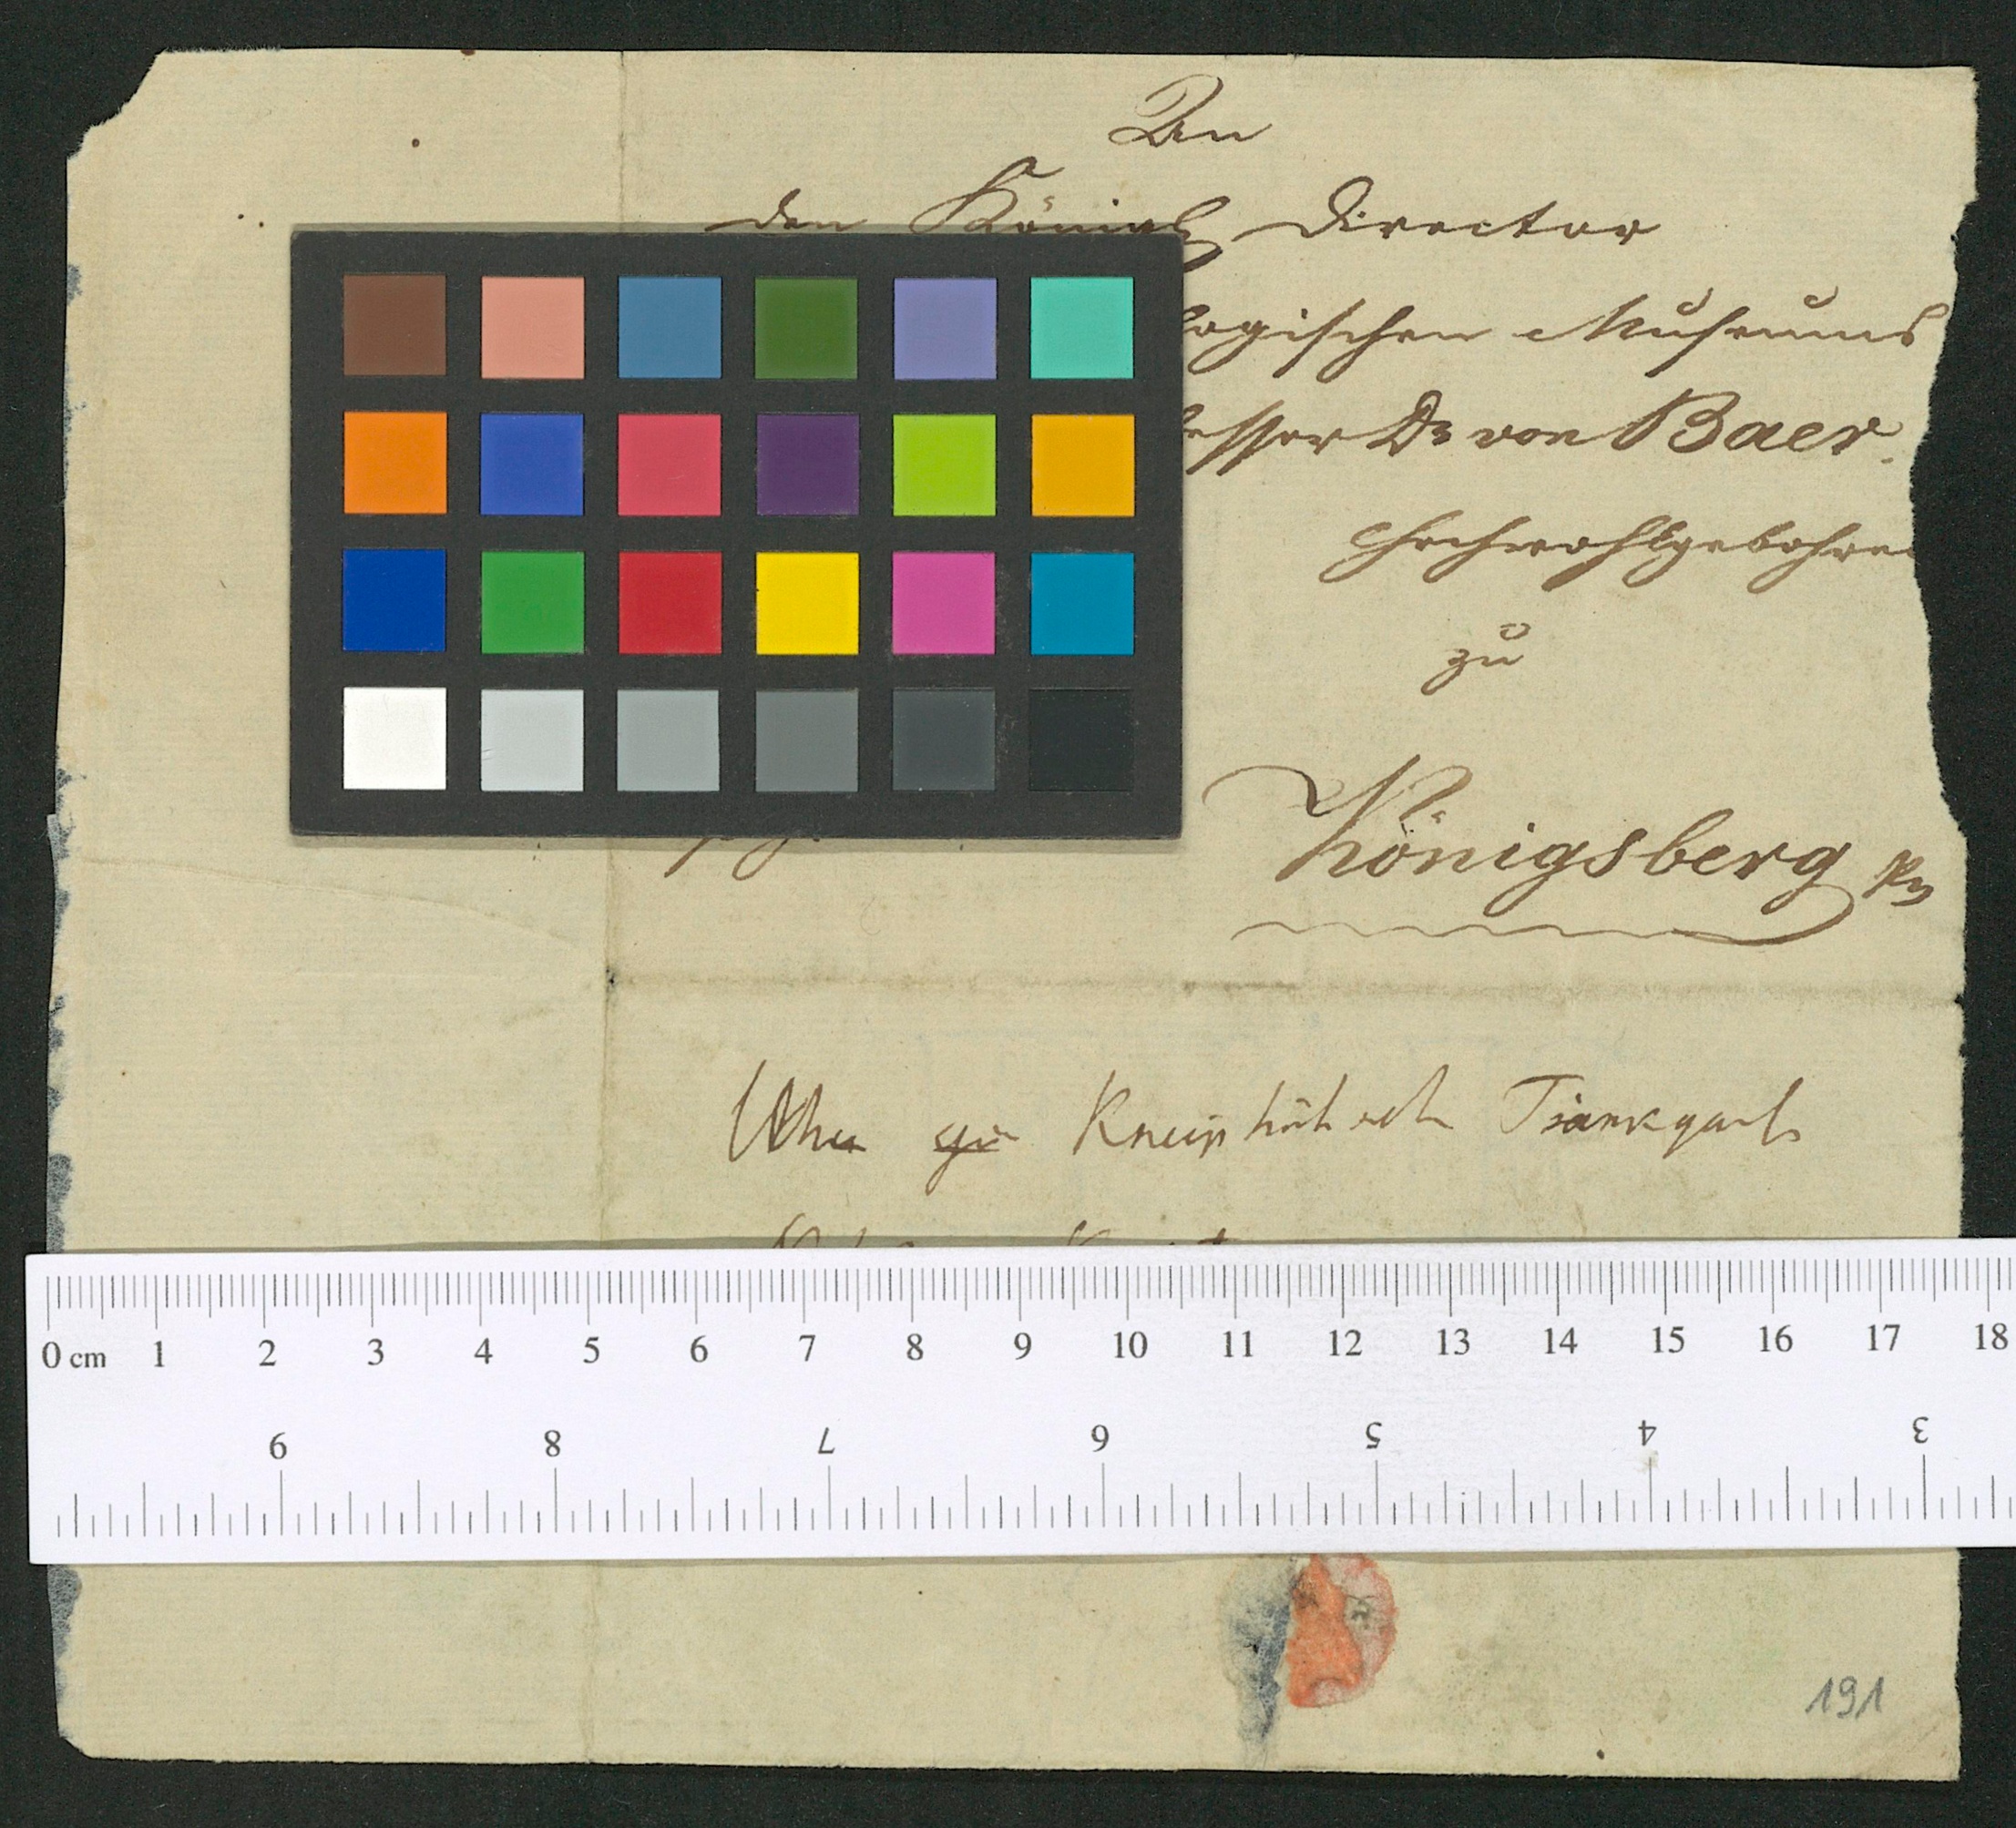 An
den Königl Director
logischen Museums
essor Dr von Baer.
Hochwohlgebohren
zu
Königsberg Pr
Kneiphöfsch
0 cm 1 2 3 4 5 6 7 8 9 10 11 12 13 14 15 16 17 18
9 8 7 6 5 4 3
191